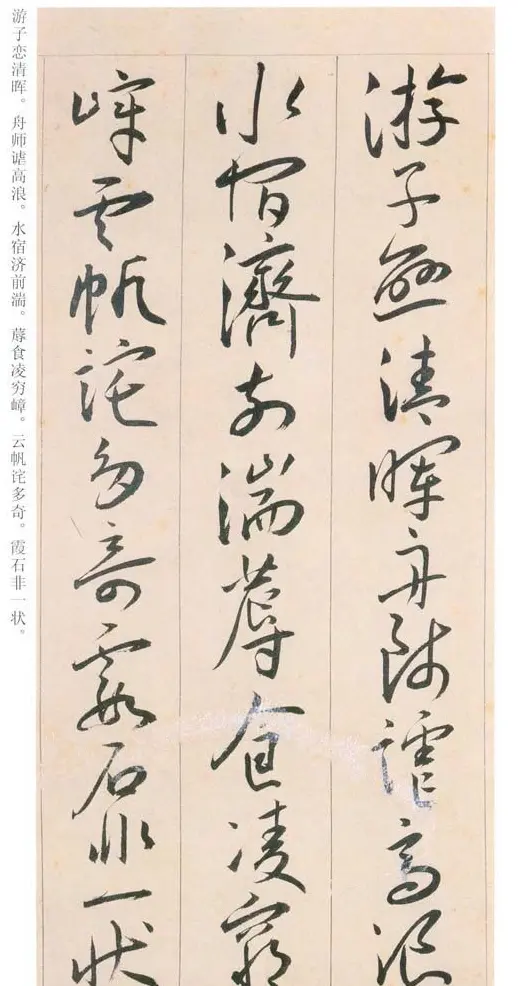 游子恋清晖。舟师谑高浪。水宿济前湍。蓐食凌穷嶂。云帆诧多奇。霞石非一状。
游子戀清暉舟師謔高浪
水宿濟前湍蓐食凌窮
嶂雲帆詫多奇霞石非一狀